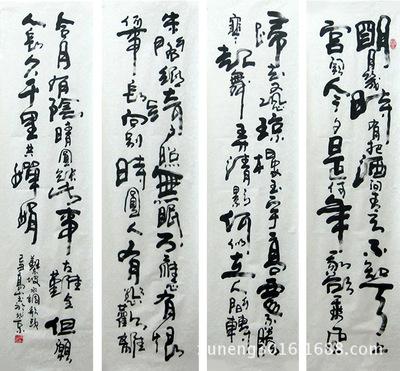 明月幾時有把酒問青天不知天上
宮闕今夕是何年我欲乘風
歸去又恐瓊樓玉宇高處不勝
寒起舞弄清影何似在人間轉
朱閣綺户照無眠不應有恨
何事長向別時圓人有悲歡離
合月有陰晴圓缺此事古難全但願
人長久千里共嬋娟
水調歌頭
於北京
zuneng3616.1688.com